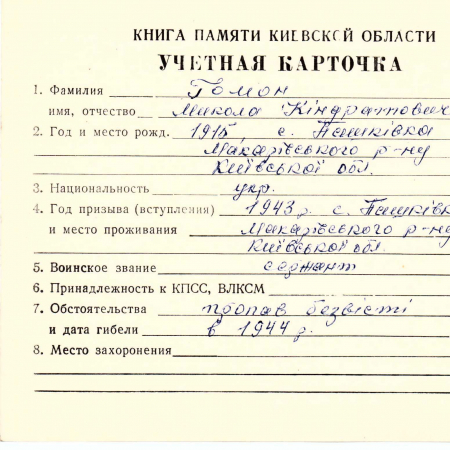 КНИГА ПАМЯТИ КИЕВСКОЙ ОБЛАСТИ
УЧЕТНАЯ КАРТОЧКА
1. Фамилия Гомон
имя, отчество Микола Кіндратович
2. Год и место рожд. 1915, с. Пашківка
Макарівського р-ну
Київської обл.
3. Национальность укр.
4. Год призыва (вступления) 1943 р. с. Пашківк
и место проживания Макарівського р-ну
Київської обл.
5. Воинское звание сержант
6. Принадлежность к КПСС, ВЛКСМ
7. Обстоятельства пропав безвісті
и дата гибели в 1944 р.
8. Место захоронения